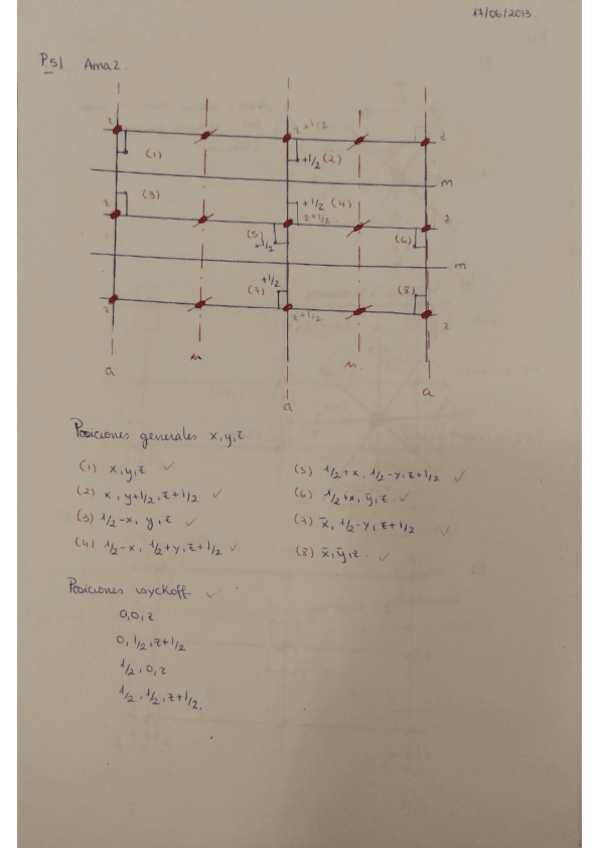 17/06/2013.
P.5| Ama2.
z z+1/2 z
(1) +1/2 (2)
m
(3) +1/2 (4)
z z+1/2 z
(5) +1/2 (6)
m
+1/2
(7) (8)
z z+1/2 z
m m
a a a
Posiciones generales x,y,z.
(1) x,y,z ✓
(2) x, y+1/2, z+1/2 ✓
(3) 1/2-x, y, z ✓
(4) 1/2-x, 1/2+y, z+1/2 ✓
(5) 1/2+x, 1/2-y, z+1/2 ✓
(6) 1/2+x, ȳ, z. ✓
(7) x̄, 1/2-y, z+1/2 ✓
(8) x̄, ȳ, z. ✓
Posiciones wyckoff. ✓
0,0,z
0, 1/2, z+1/2
1/2, 0, z
1/2, 1/2, z+1/2.